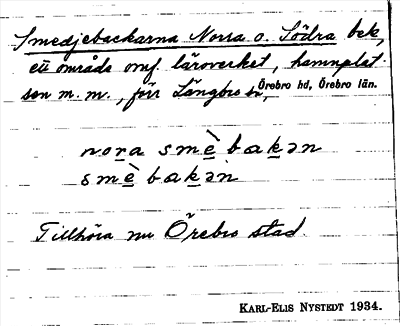 Smedjebackarna Norra o. Södra bek,
ett område omf. läroverket, hamnplat-
sen m. m., förr Längbro sn, Örebro hd, Örebro län.
nora smè bakən
smè bakən
Tillhöra nu Örebro stad.
KARL-ELIS NYSTEDT 1934.